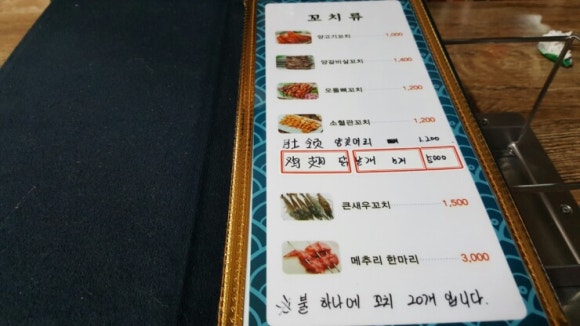 꼬치류
양고기꼬치 1,000
양갈비살꼬치 1,400
오돌뼈꼬치 1,200
소혈관꼬치 1,200
양깃머리 1.200
鸡翅 닭날개 2개 5000
큰새우꼬치 1,500
메추리 한마리 3,000
※ 불 하나에 꼬치 20개 입니다.